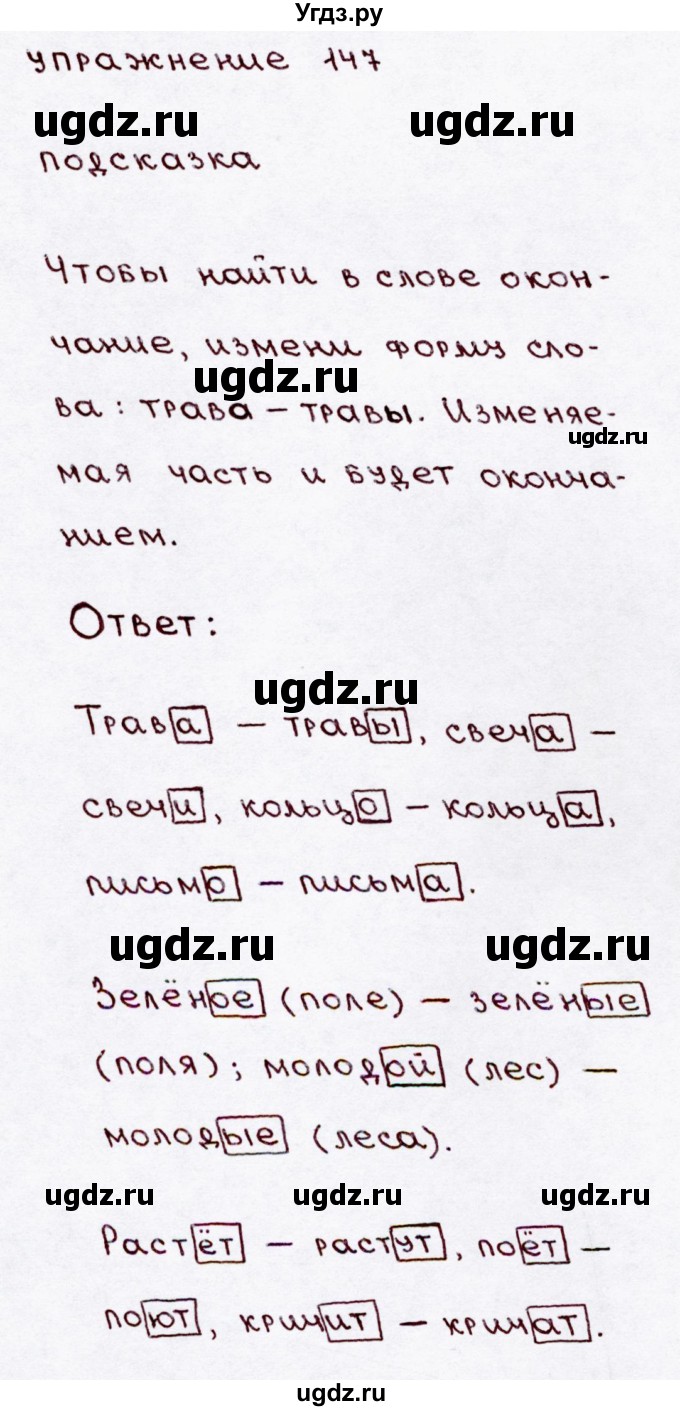 Угдз.ру
упражнение 147
ugdz.ru ugdz.ru
подсказка
Чтобы найти в слове окон-
чание, измени форму сло-
ugdz.ru
ва: трава – травы. Изменяе-
ugdz.ru
мая часть и будет оконча-
нием.
Ответ:
ugdz.ru
Трава – травы, свеча –
свечи, кольцо – кольца,
письмо – письма.
ugdz.ru ugdz.ru
Зелёное (поле) – зелёные
(поля); молодой (лес) –
молодые (леса).
ugdz.ru ugdz.ru ugdz.ru
Растёт – растут, поёт –
поют, кричит – кричат.
ugdz.ru